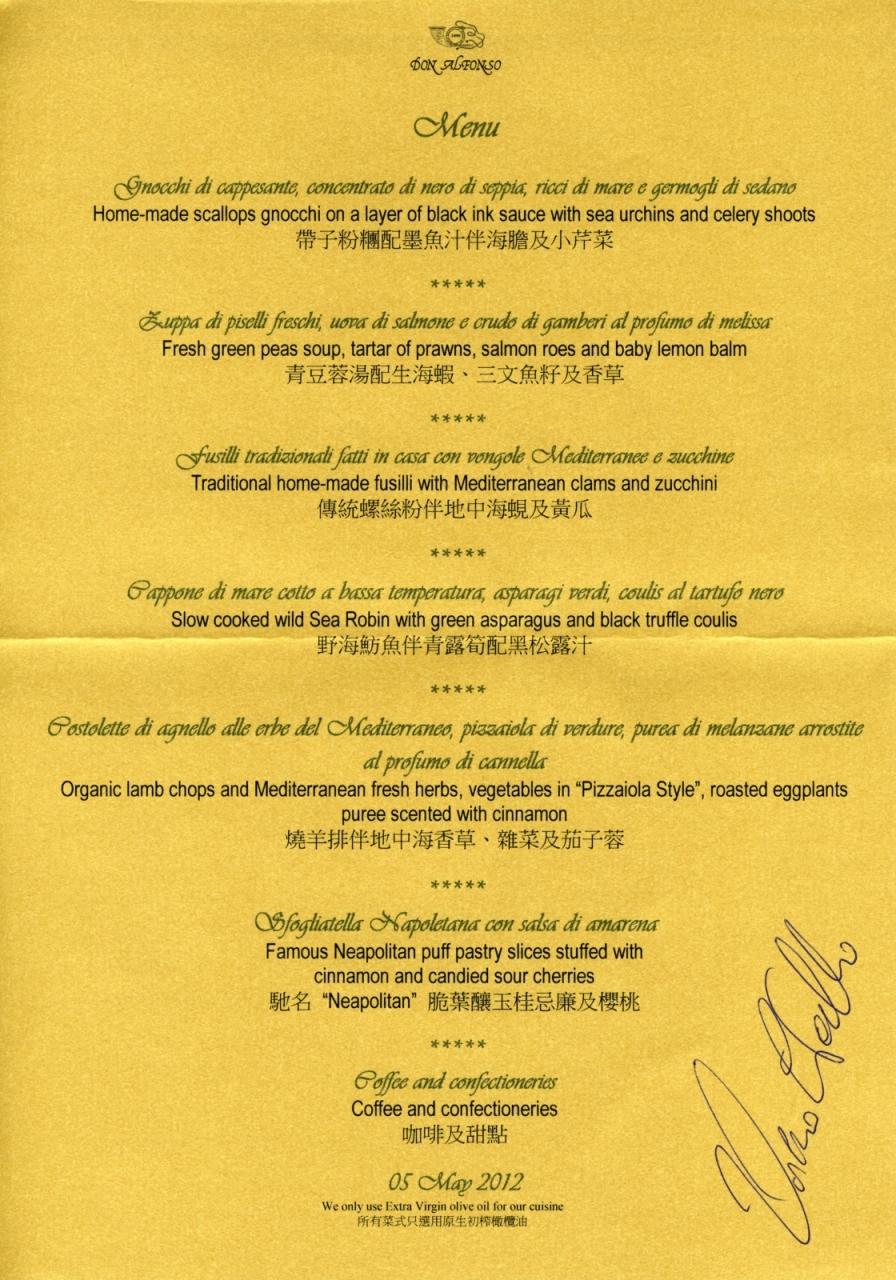 DON ALFONSO
Menu
Gnocchi di cappesante, concentrato di nero di seppia, ricci di mare e germogli di sedano
Home-made scallops gnocchi on a layer of black ink sauce with sea urchins and celery shoots
帶子粉糰配墨魚汁伴海膽及小芹菜
*****
Zuppa di piselli freschi, uova di salmone e crudo di gamberi al profumo di melissa
Fresh green peas soup, tartar of prawns, salmon roes and baby lemon balm
青豆蓉湯配生海蝦、三文魚籽及香草
*****
Fusilli tradizionali fatti in casa con vongole Mediterranee e zucchine
Traditional home-made fusilli with Mediterranean clams and zucchini
傳統螺絲粉伴地中海蜆及黃瓜
*****
Cappone di mare cotto a bassa temperatura, asparagi verdi, coulis al tartufo nero
Slow cooked wild Sea Robin with green asparagus and black truffle coulis
野海魴魚伴青露筍配黑松露汁
*****
Costolette di agnello alle erbe del Mediterraneo, pizzaiola di verdure, purea di melanzane arrostite
al profumo di cannella
Organic lamb chops and Mediterranean fresh herbs, vegetables in “Pizzaiola Style”, roasted eggplants
puree scented with cinnamon
燒羊排伴地中海香草、雜菜及茄子蓉
*****
Sfogliatella Napoletana con salsa di amarena
Famous Neapolitan puff pastry slices stuffed with
cinnamon and candied sour cherries
馳名 “Neapolitan” 脆葉釀玉桂忌廉及櫻桃
*****
Coffee and confectioneries
Coffee and confectioneries
咖啡及甜點
05 May 2012
We only use Extra Virgin olive oil for our cuisine
所有菜式只選用原生初榨橄欖油